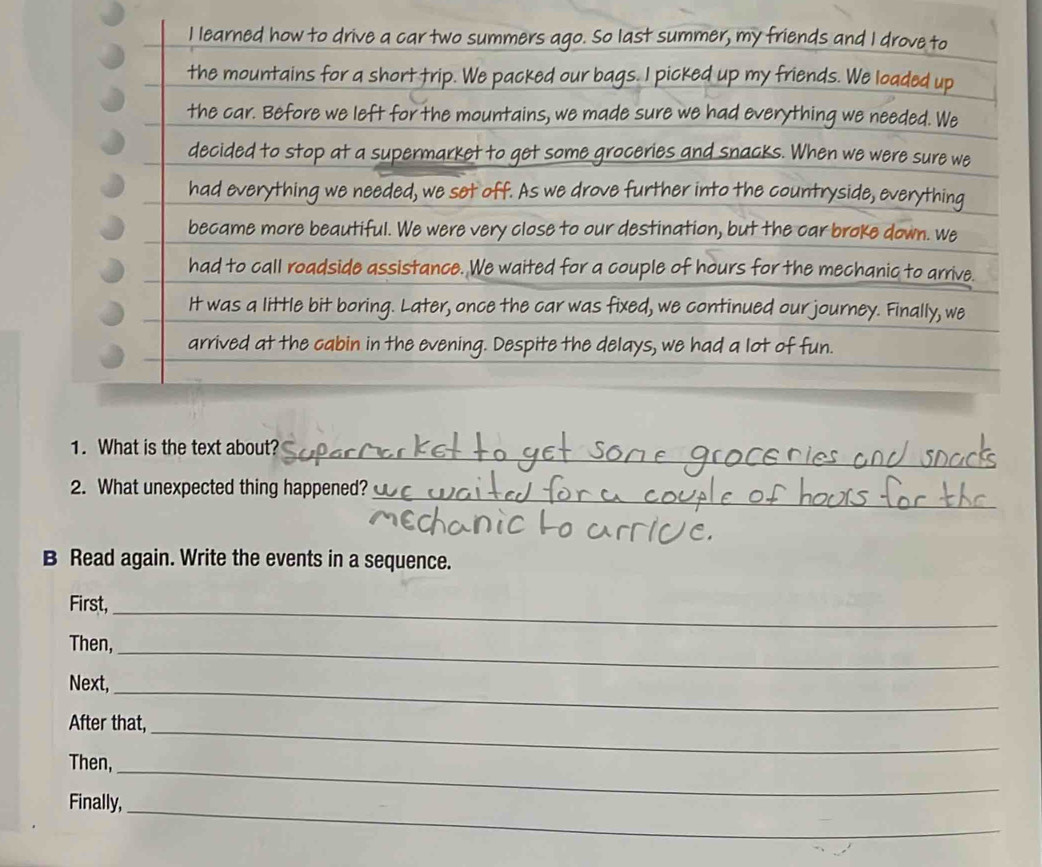 I learned how to drive a car two summers ago. So last summer, my friends and I drove to
the mountains for a short trip. We packed our bags. I picked up my friends. We loaded up
the car. Before we left for the mountains, we made sure we had everything we needed. We
decided to stop at a supermarket to get some groceries and snacks. When we were sure we
had everything we needed, we set off. As we drove further into the countryside, everything
became more beautiful. We were very close to our destination, but the car broke down. We
had to call roadside assistance. We waited for a couple of hours for the mechanic to arrive.
It was a little bit boring. Later, once the car was fixed, we continued our journey. Finally, we
arrived at the cabin in the evening. Despite the delays, we had a lot of fun.
1. What is the text about? Suparmarket to get some groceries and snacks
2. What unexpected thing happened? we waited for a couple of hours for the
mechanic to arrive.
B Read again. Write the events in a sequence.
First,
Then,
Next,
After that,
Then,
Finally,